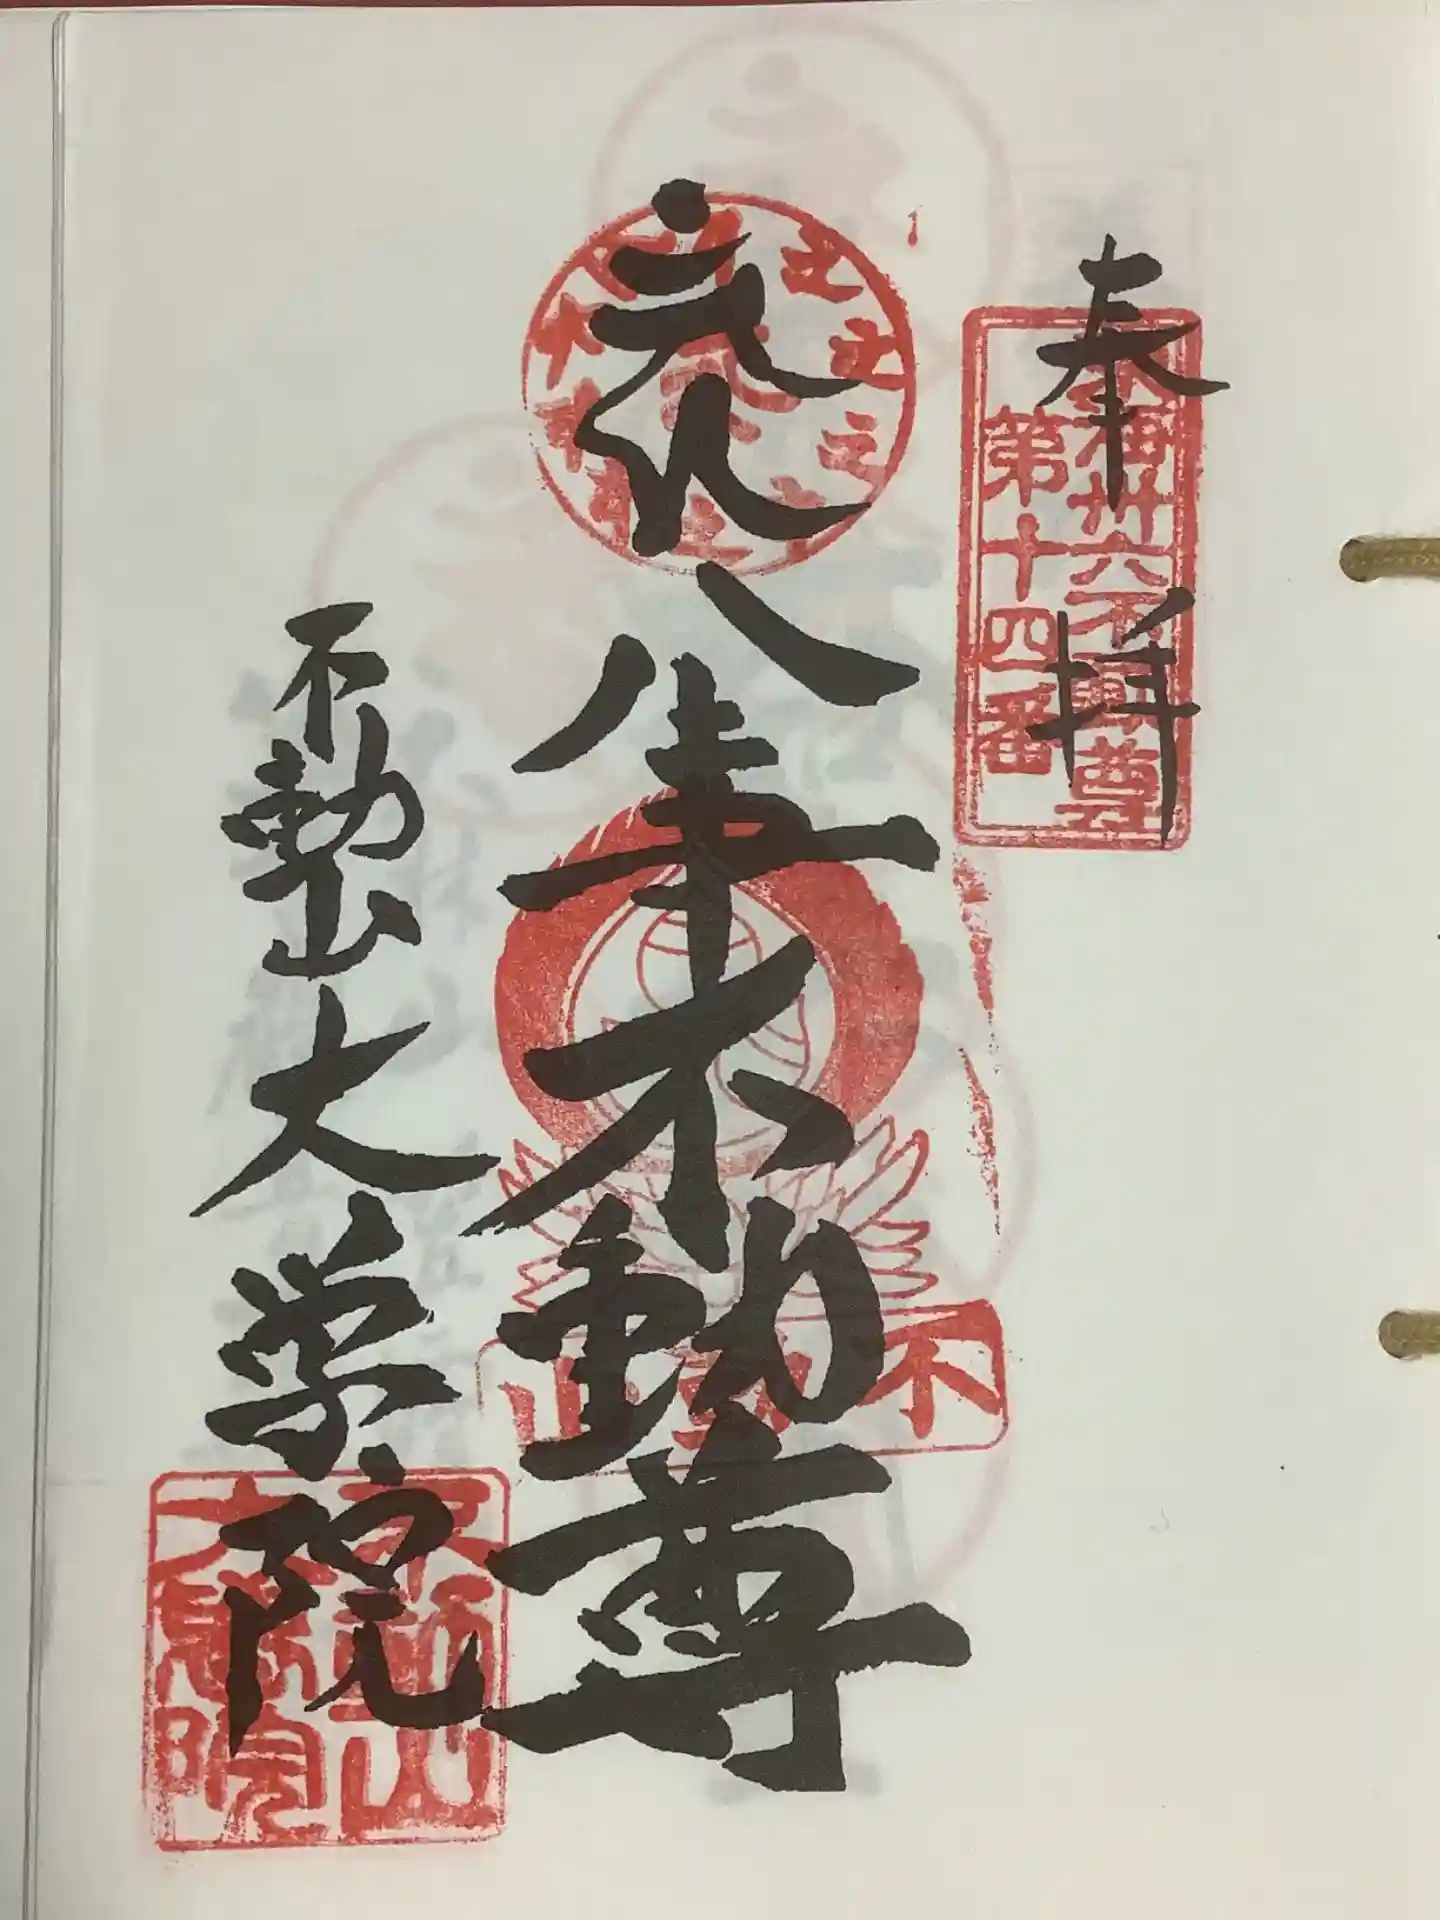 奉拝
東海卅六不動尊
第十四番
八事不動尊
不動山
不動山大学院
不動山
大學院